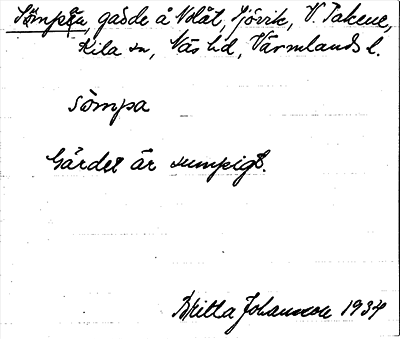 Sömpa, gärde å Nolåt, Sjövik, V. Takene,
Kila sn, Näs hd, Värmlands l.
sömpa
Gärdet är sumpigt.
Britta Johansson 1934